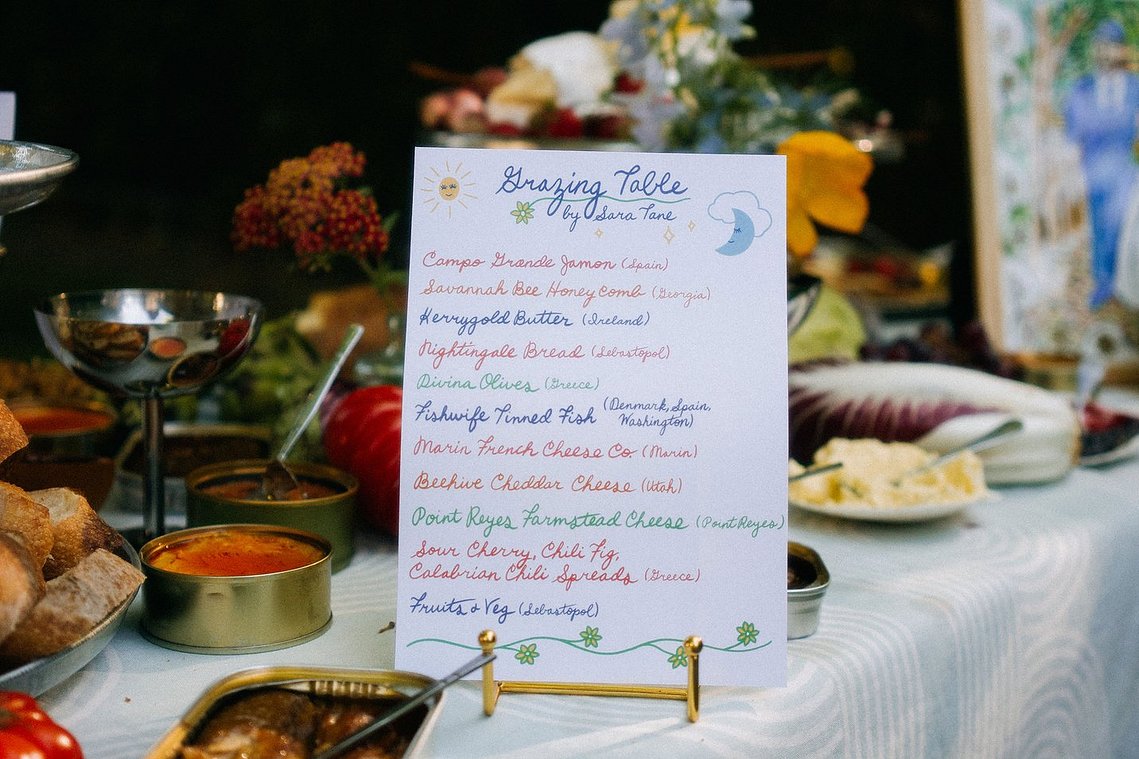 Grazing Table
by Sara Tane
Campo Grande Jamon (Spain)
Savannah Bee Honey Comb (Georgia)
Kerrygold Butter (Ireland)
Nightingale Bread (Sebastopol)
Divina Olives (Greece)
Fishwife Tinned Fish (Denmark, Spain,
Washington)
Marin French Cheese Co. (Marin)
Beehive Cheddar Cheese (Utah)
Point Reyes Farmstead Cheese (Point Reyes)
Sour Cherry, Chili Fig,
Calabrian Chili Spreads (Greece)
Fruits & Veg (Sebastopol)